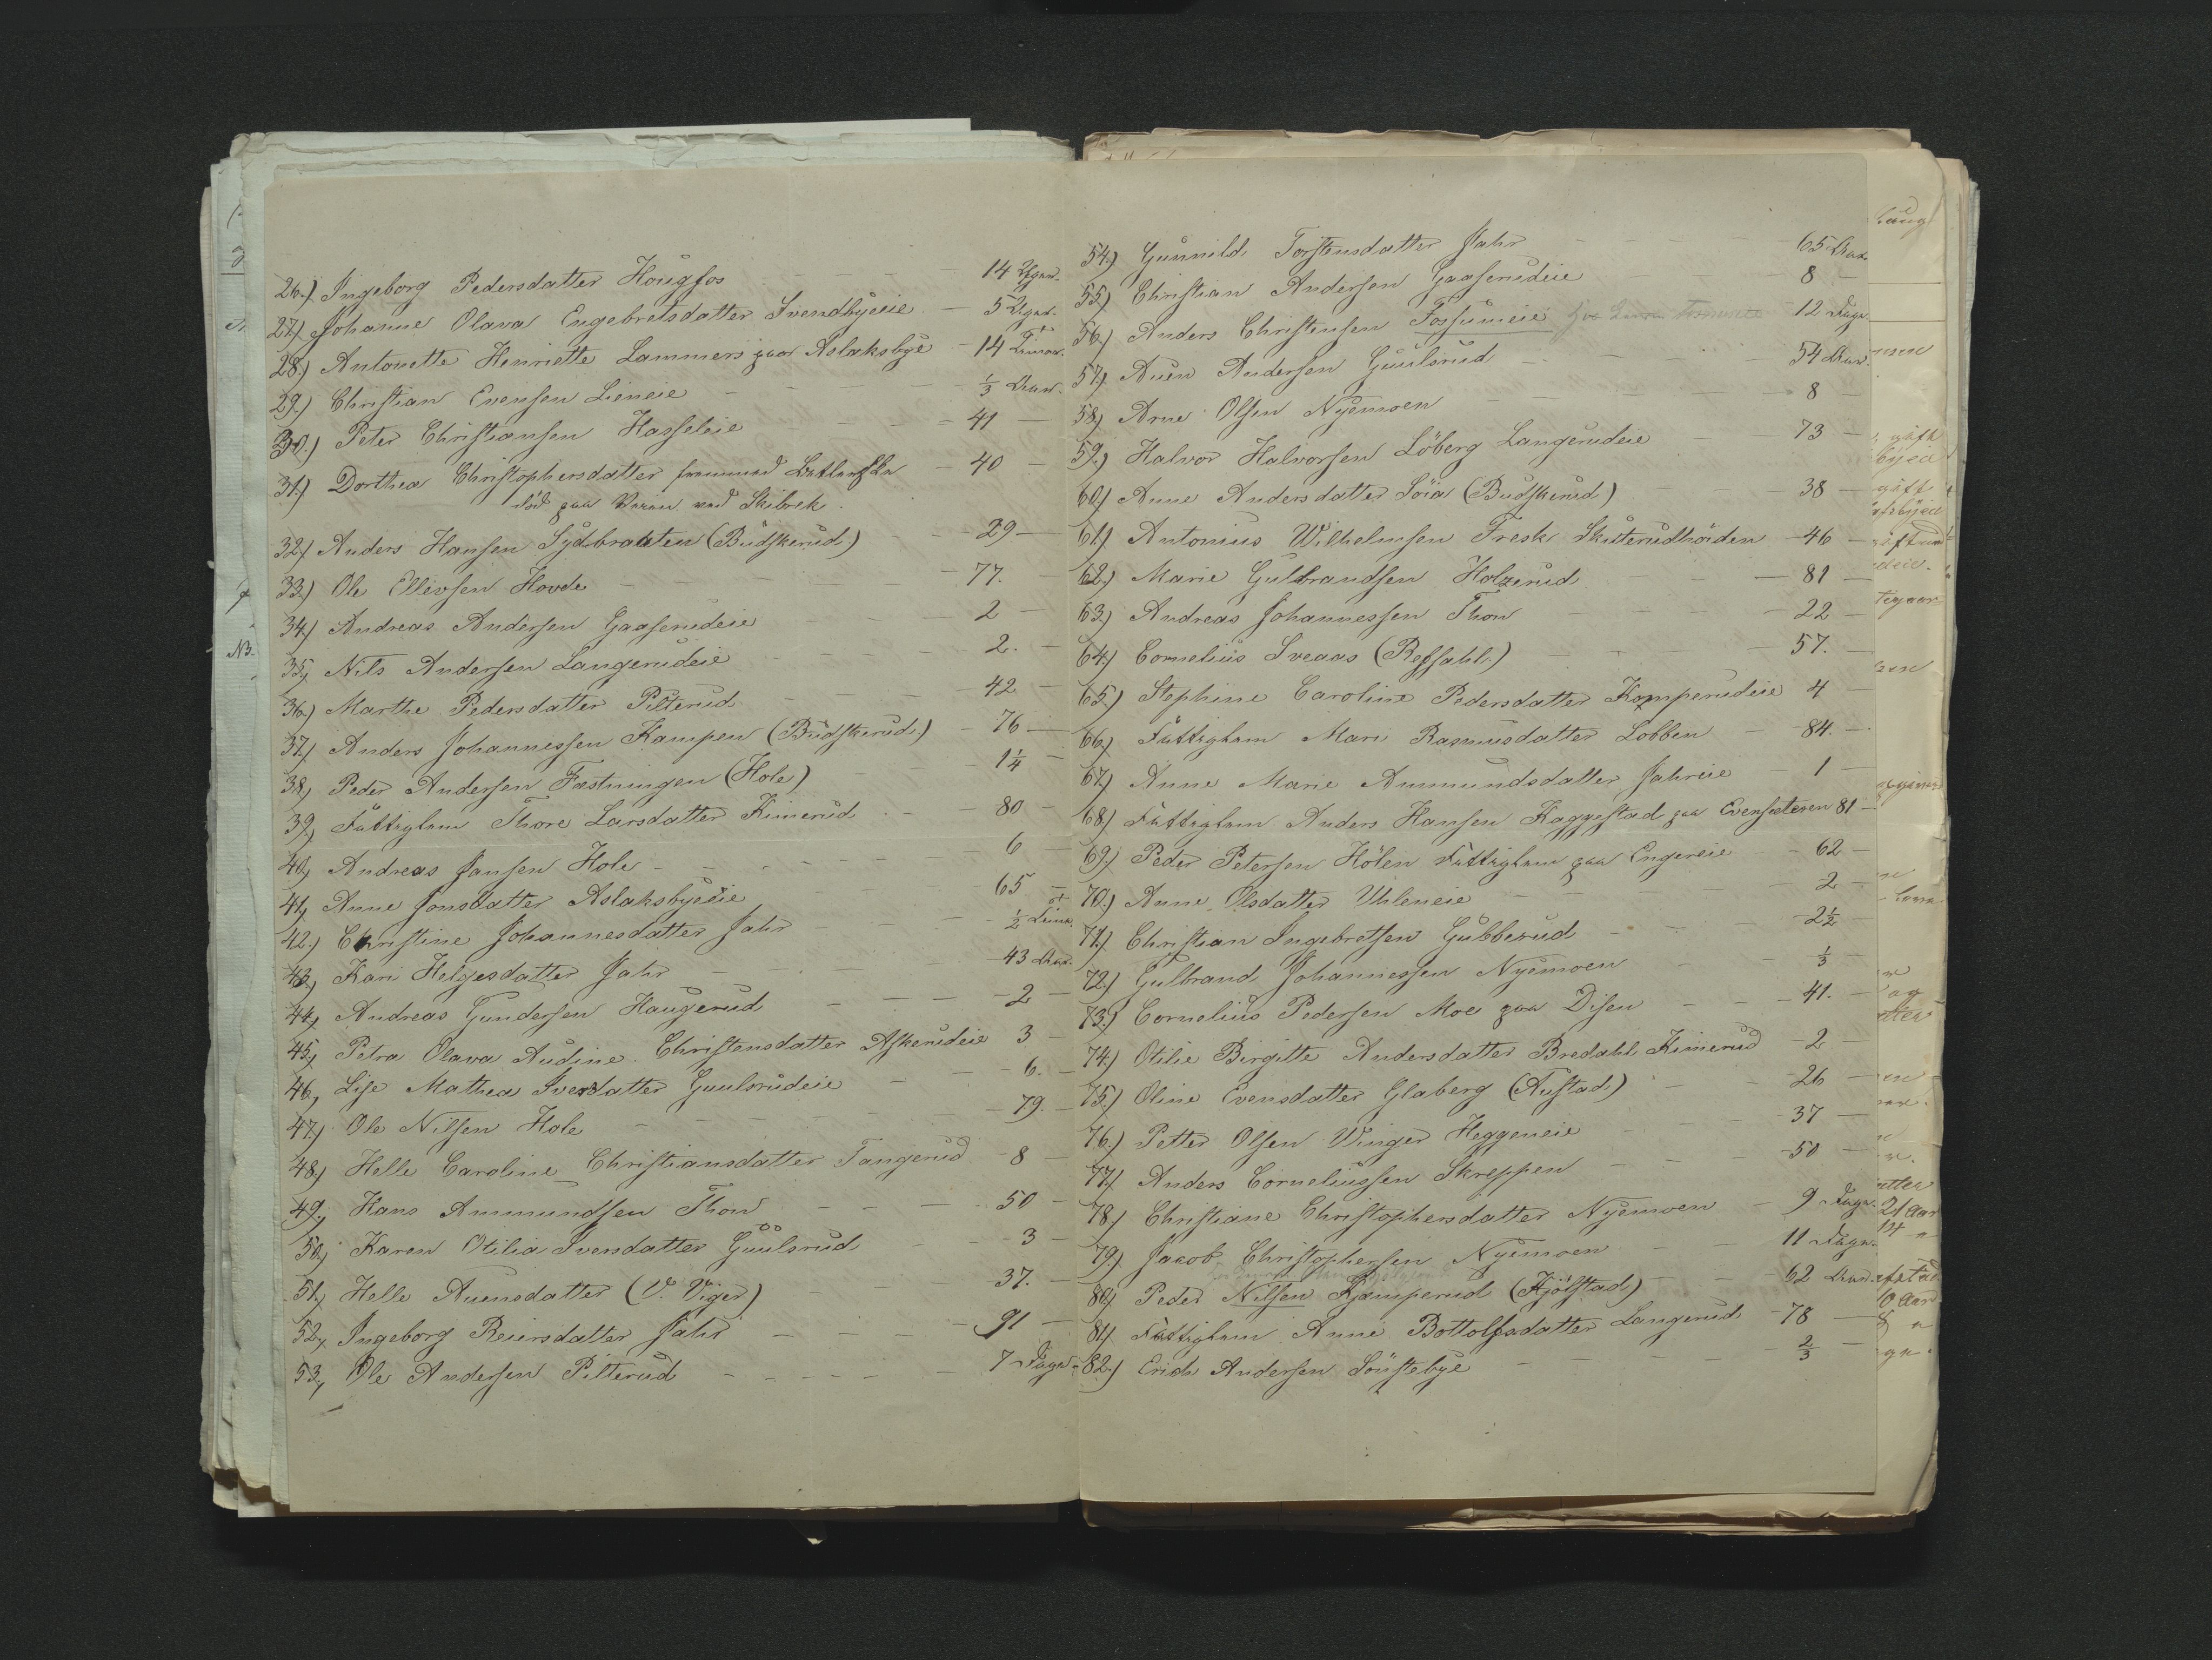 26.) Ingeborg Pedersdatter Hougfos - - - - 14 Ugur.
27.) Johanne Olava Engebretsdatter Svendbyeeie - 5 Ugur.
28.) Antonette Henriette Lammers paa Aslaksbye - 14
29.) Christian Evensen Lieneie - - - - 1/3 Aar.
30.) Peter Christiansen Hasseleie - - - - 41 -
31.) Dorthea Christophersdatter - 40 -
død paa Veien ved Skibrek.
32.) Anders Hansen Sydbraaten (Budskerud) - - 29 -
33.) Ole Ellevsen Hovde - - - - 77. -
34.) Andreas Andersen Gaaserudeie - - 2 -
35.) Nils Andersen Langerudeie - - - 2. -
36.) Marthe Pedersdatter Pilterud - - - 42 -
37.) Anders Johannessen Kampen (Budskerud) - 76 -
38.) Peder Andersen Fæstningen (Hole) - - 1 1/4 -
39.) Fattiglem Thore Larsdatter Kinerud - - 80 -
40.) Andreas Jansen Hole - - - - 6 -
41.) Anne Jonsdatter Aslaksbyeeie - - - 65 -
42.) Christine Johannesdatter Jahr - - - 1/2
43.) Kari Helgesdatter Jahr - - - - 43 Aar.
44.) Andreas Gundersen Haugerud - - - 2 -
45.) Petra Olava Audine Christensdatter Askerudeie 3 -
46.) Lise Mathea Iversdatter Guulsrudeie - - 6. -
47.) Ole Nilsen Hole - - - - - 79. -
48.) Helle Caroline Christiansdatter Tangerud - 8 -
49.) Hans Ammundsen Thon - - - 50 -
50.) Karen Otilia Iversdatter Guulsrud - - 3 -
51.) Helle Auensdatter (V. Viger) - - 37. -
52.) Ingeborg Reiersdatter Jahr - - - 91 -
53.) Ole Andersen Pilterud - - - - - 7 Dage
54.) Gunnild Torstensdatter Jahr - - - 65 Aar.
55.) Christian Andersen Gaaserudeie - - 8 -
56.) Anders Christensen Fossumeie - 12 Dage
57.) Auen Andersen Guulsrud - - - 54 Aar.
58.) Arne Olsen Nyemoen - - - - 8 -
59.) Halvor Halvorsen Löberg Langerudeie - 73 -
60.) Anne Andersdatter Söia (Budskerud) - - 38 -
61.) Antonius Wilhelmsen Fresk Skuterudhöiden - 46 -
62.) Marie Gulbrandsen Holzerud - - - 81 -
63.) Andreas Johannessen Thon - - - 22 -
64.) Cornelius Sveaas (Refsahl.) - - - 57. -
65.) Stephine Caroline Pedersdatter Kamperudeie 4 -
66.) Fattiglem Mari Rasmusdatter Lobben - 84. -
67.) Anne Marie Ammundsdatter Jahreie - 1 -
68.) Fattiglem Anders Hansen Kaggestad paa Evensæteren 81 -
69.) Peder Petersen Hölen Fattiglem paa Engereie - 62 -
70.) Anne Olsdatter Uhleneie - - - - 2 -
71.) Christian Ingebretsen Gubberud - - - 2 1/2 -
72.) Gulbrand Johannessen Nyemoen - - 1/3 -
73.) Cornelius Pedersen Moe paa Disen - - 41. -
74.) Otilie Birgitte Andersdatter Bredahl Kinerud - 2 -
75.) Oline Evensdatter Glaberg (Austad) - - 26 -
76.) Petter Olsen Winger Heggeneie - - 37 -
77.) Anders Corneliussen Skreppen - - - 50 -
78.) Christiane Christophersdatter Nyemoen - 9 Dage.
79.) Jacob Christophersen Nyemoen - - 11 Dage.
80.) Peder Nilsen Kjæmperud (Kjölstad) - - 62 Aar.
81.) Fattiglem Anne Bottolfsdatter Langerud - 78 -
82.) Erich Andersen Sönstebye - - - - 2/3 -